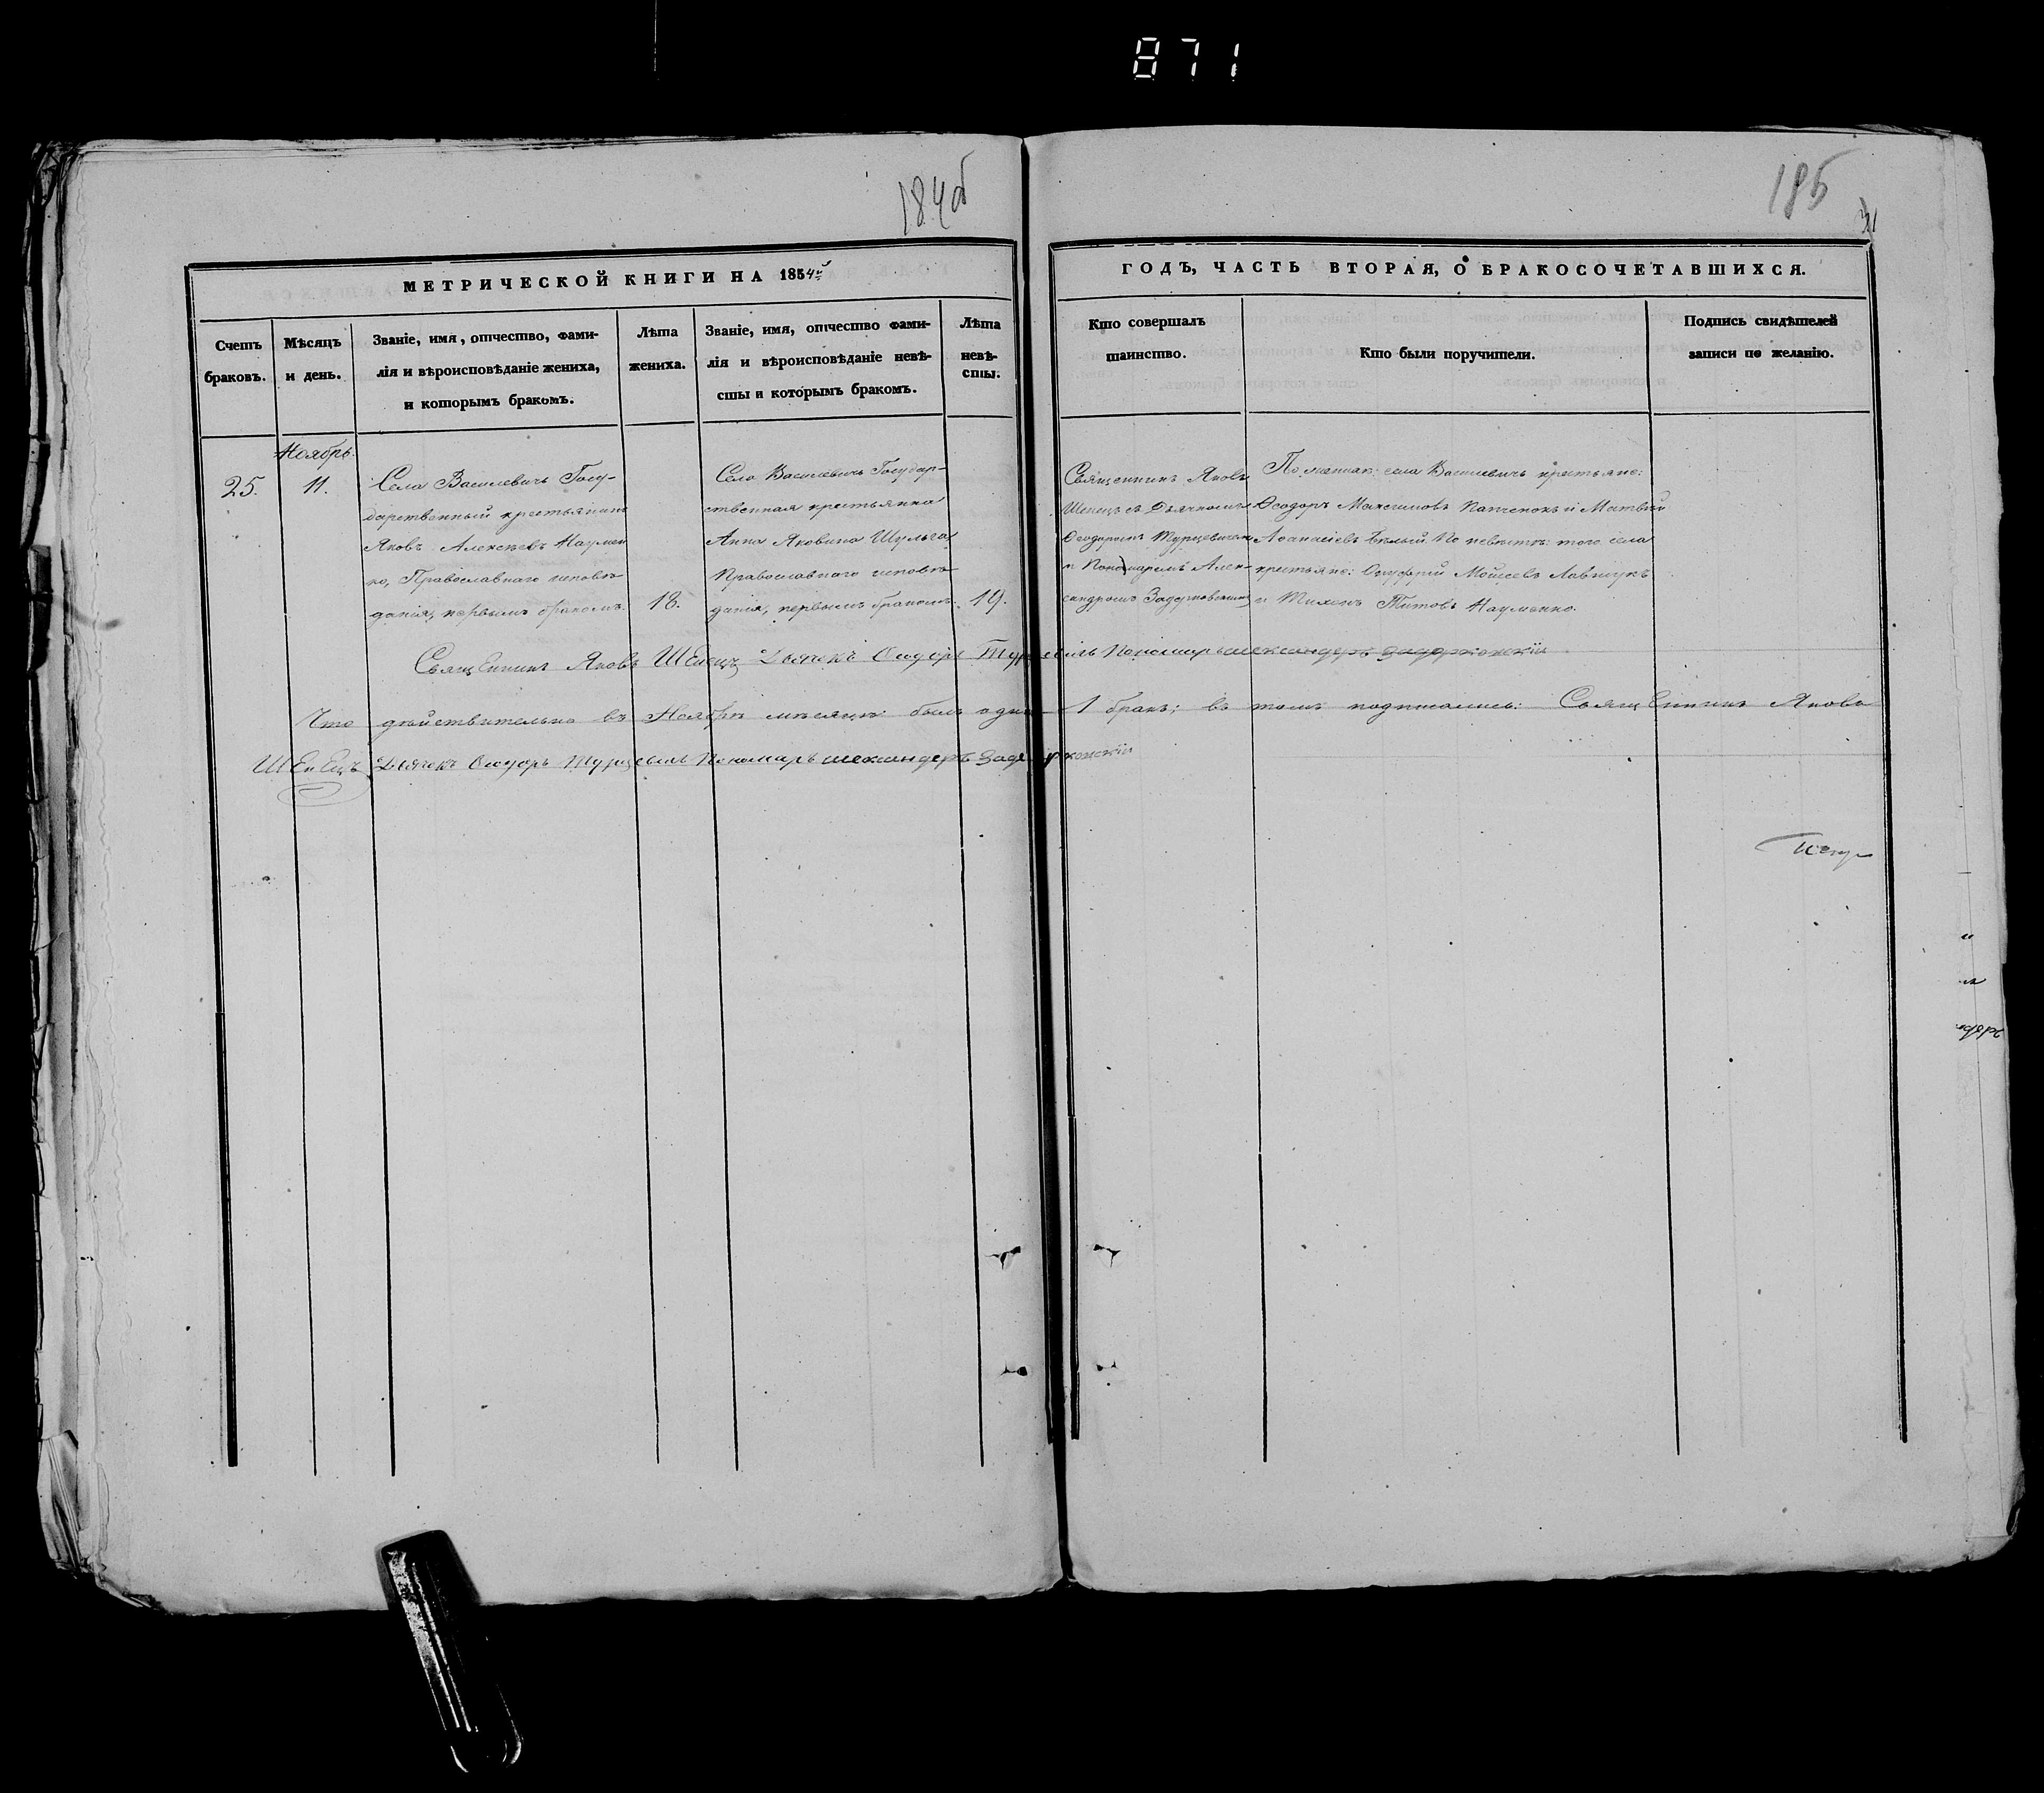 871
184об
185
31
МЕТРИЧЕСКОЙ КНИГИ НА 1854й
ГОДЪ, ЧАСТЬ ВТОРАЯ, О БРАКОСОЧЕТАВШИХСЯ.
Счетъ
браковъ.
Мѣсяцъ
и день.
Званіе, имя, отчество, фами-
лія и вѣроисповѣданіе жениха,
и которымъ бракомъ.
Лѣта
жениха.
Званіе, имя, отчество фами-
лія и вѣроисповѣданіе невѣ-
сты и которымъ бракомъ.
Лѣта
невѣ-
сты.
Кто совершалъ
таинство.
Кто были поручители.
Подпись свидѣтелей
записи по желанію.
Ноябрь.
25.
11.
Села Василевичъ Госу-
дарственный крестьянинъ
Яковъ Алексѣевъ Наумен
ко, Православнаго исповѣ
данія, первымъ бракомъ.
18.
Села Василевичъ Государ-
ственная крестьянка
Анна Яковина Шульга
Православнаго исповѣ
данія, первымъ бракомъ.
19.
Священникъ Яковъ
Шепецъ съ Дьячкомъ
Ѳеодоромъ Турцевичемъ
и Пономаремъ Алек-
сандромъ Задерковскимъ
По женихѣ: села Василевичъ крестьяне:
Ѳеодоръ Максимовъ Патенокъ и Матвѣй
Аѳанасіевъ Бѣлый. По невѣстѣ: того села
крестьяне: Онуфрій Моисеевъ Лавшукъ
и Тихонъ Титовъ Науменко.
Священникъ Яковъ Шепецъ Дьячекъ Ѳеодоръ Турцевичъ Пономарь Александръ Задерковскій
Что дѣйствительно въ Ноябрѣ мѣсяцѣ былъ одинъ 1 бракъ; въ томъ подписались: Священникъ Яковъ
Шепецъ Дьячекъ Ѳеодоръ Турцевичъ Пономарь Александръ Задерковскій